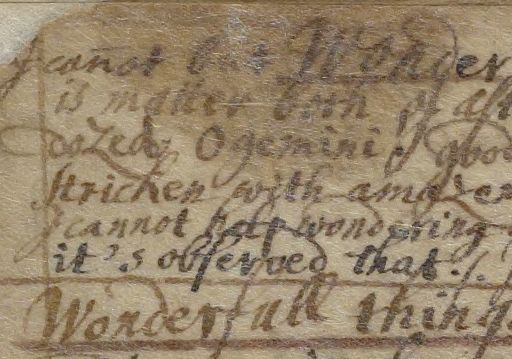 I can̄ot but Wonder
is matter both of ast
dozed, O gemini! good
stricken with amazem
I cannot help wondering
it's observed that ./.
Wonderfull things